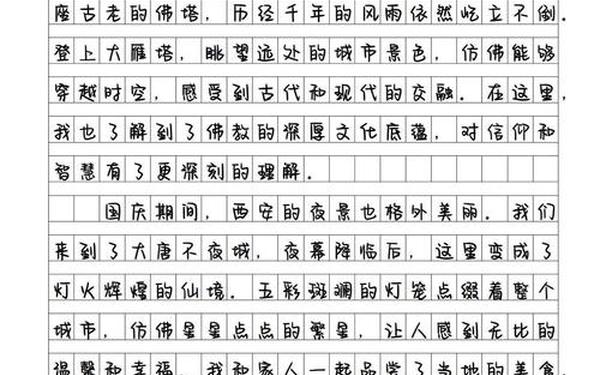 座古老的佛塔，历经千年的风雨依然屹立不倒．
登上大雁塔，眺望远处的城市景色，仿佛能够
穿越时空，感受到古代和现代的交融．在这里，
我也了解到了佛教的深厚文化底蕴，对信仰和
智慧有了更深刻的理解．
国庆期间，西安的夜景也格外美丽．我们
来到了大唐不夜城，夜幕降临后，这里变成了
灯火辉煌的仙境．五彩斑斓的灯笼点缀着整个
城市，仿佛星星点点的繁星，让人感到无比的
温馨和幸福．我和家人一起品尝了当地的美食，